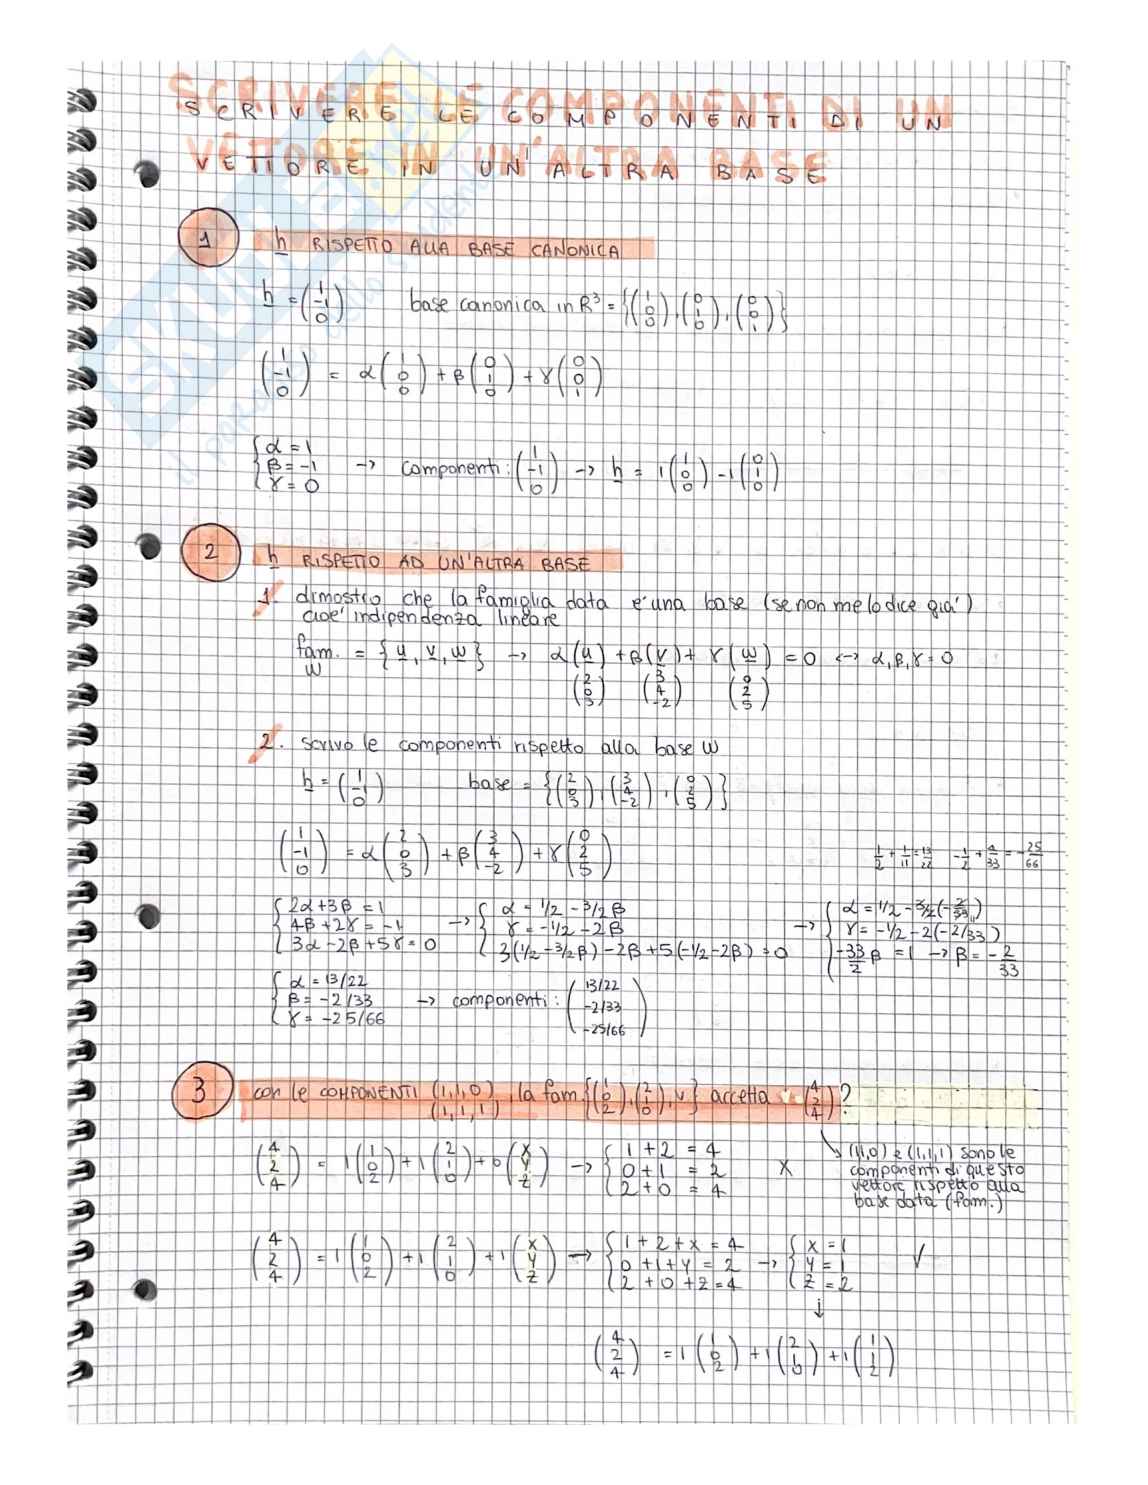 SCRIVERE LE COMPONENTI DI UN
VETTORE IN UN'ALTRA BASE
1 h RISPETTO ALLA BASE CANONICA
h = (1 -1 0) base canonica in R³ = {(1 0 0), (0 1 0), (0 0 1)}
(1 -1 0) = α(1 0 0) + β(0 1 0) + γ(0 0 1)
{α = 1
β = -1 → componenti: (1 -1 0) → h = 1(1 0 0) -1(0 1 0)
γ = 0
2 h RISPETTO AD UN'ALTRA BASE
1. dimostro che la famiglia data è una base (se non me lo dice già)
cioè indipendenza lineare
fam. W = {u, v, w} → α(u) + β(v) + γ(w) = 0 ↔ α, β, γ = 0
(2 0 3) (3 4 -2) (0 2 5)
2. scrivo le componenti rispetto alla base W
h = (1 -1 0) base = {(2 0 3), (3 4 -2), (0 2 5)}
(1 -1 0) = α(2 0 3) + β(3 4 -2) + γ(0 2 5)
1/2 + 1/11 = 13/22 -1/2 + 4/33 = -25/66
{2α + 3β = 1 → {α = 1/2 - 3/2 β → {α = 1/2 - 3/2(-2/33)
4β + 2γ = -1 γ = -1/2 - 2β γ = -1/2 - 2(-2/33)
3α - 2β + 5γ = 0 3(1/2 - 3/2β) - 2β + 5(-1/2 - 2β) = 0 -33/2 β = 1 → β = -2/33
{α = 13/22
β = -2/33 → componenti: (13/22 -2/33 -25/66)
γ = -25/66
3 con le COMPONENTI (1,1,0), la fam. {(1 0 2), (2 1 0), v} accetta (4 2 4)?
(1,1,1)
(4 2 4) = 1(1 0 2) + 1(2 1 0) + 0(x y z) → {1 + 2 = 4
0 + 1 = 2 X
2 + 0 = 4
(1,1,0) e (1,1,1) sono le
componenti di questo
vettore rispetto alla
base data (fam.)
(4 2 4) = 1(1 0 2) + 1(2 1 0) + 1(x y z) → {1 + 2 + x = 4 → {x = 1
0 + 1 + y = 2 y = 1 ✓
2 + 0 + z = 4 z = 2
↓
(4 2 4) = 1(1 0 2) + 1(2 1 0) + 1(1 1 2)